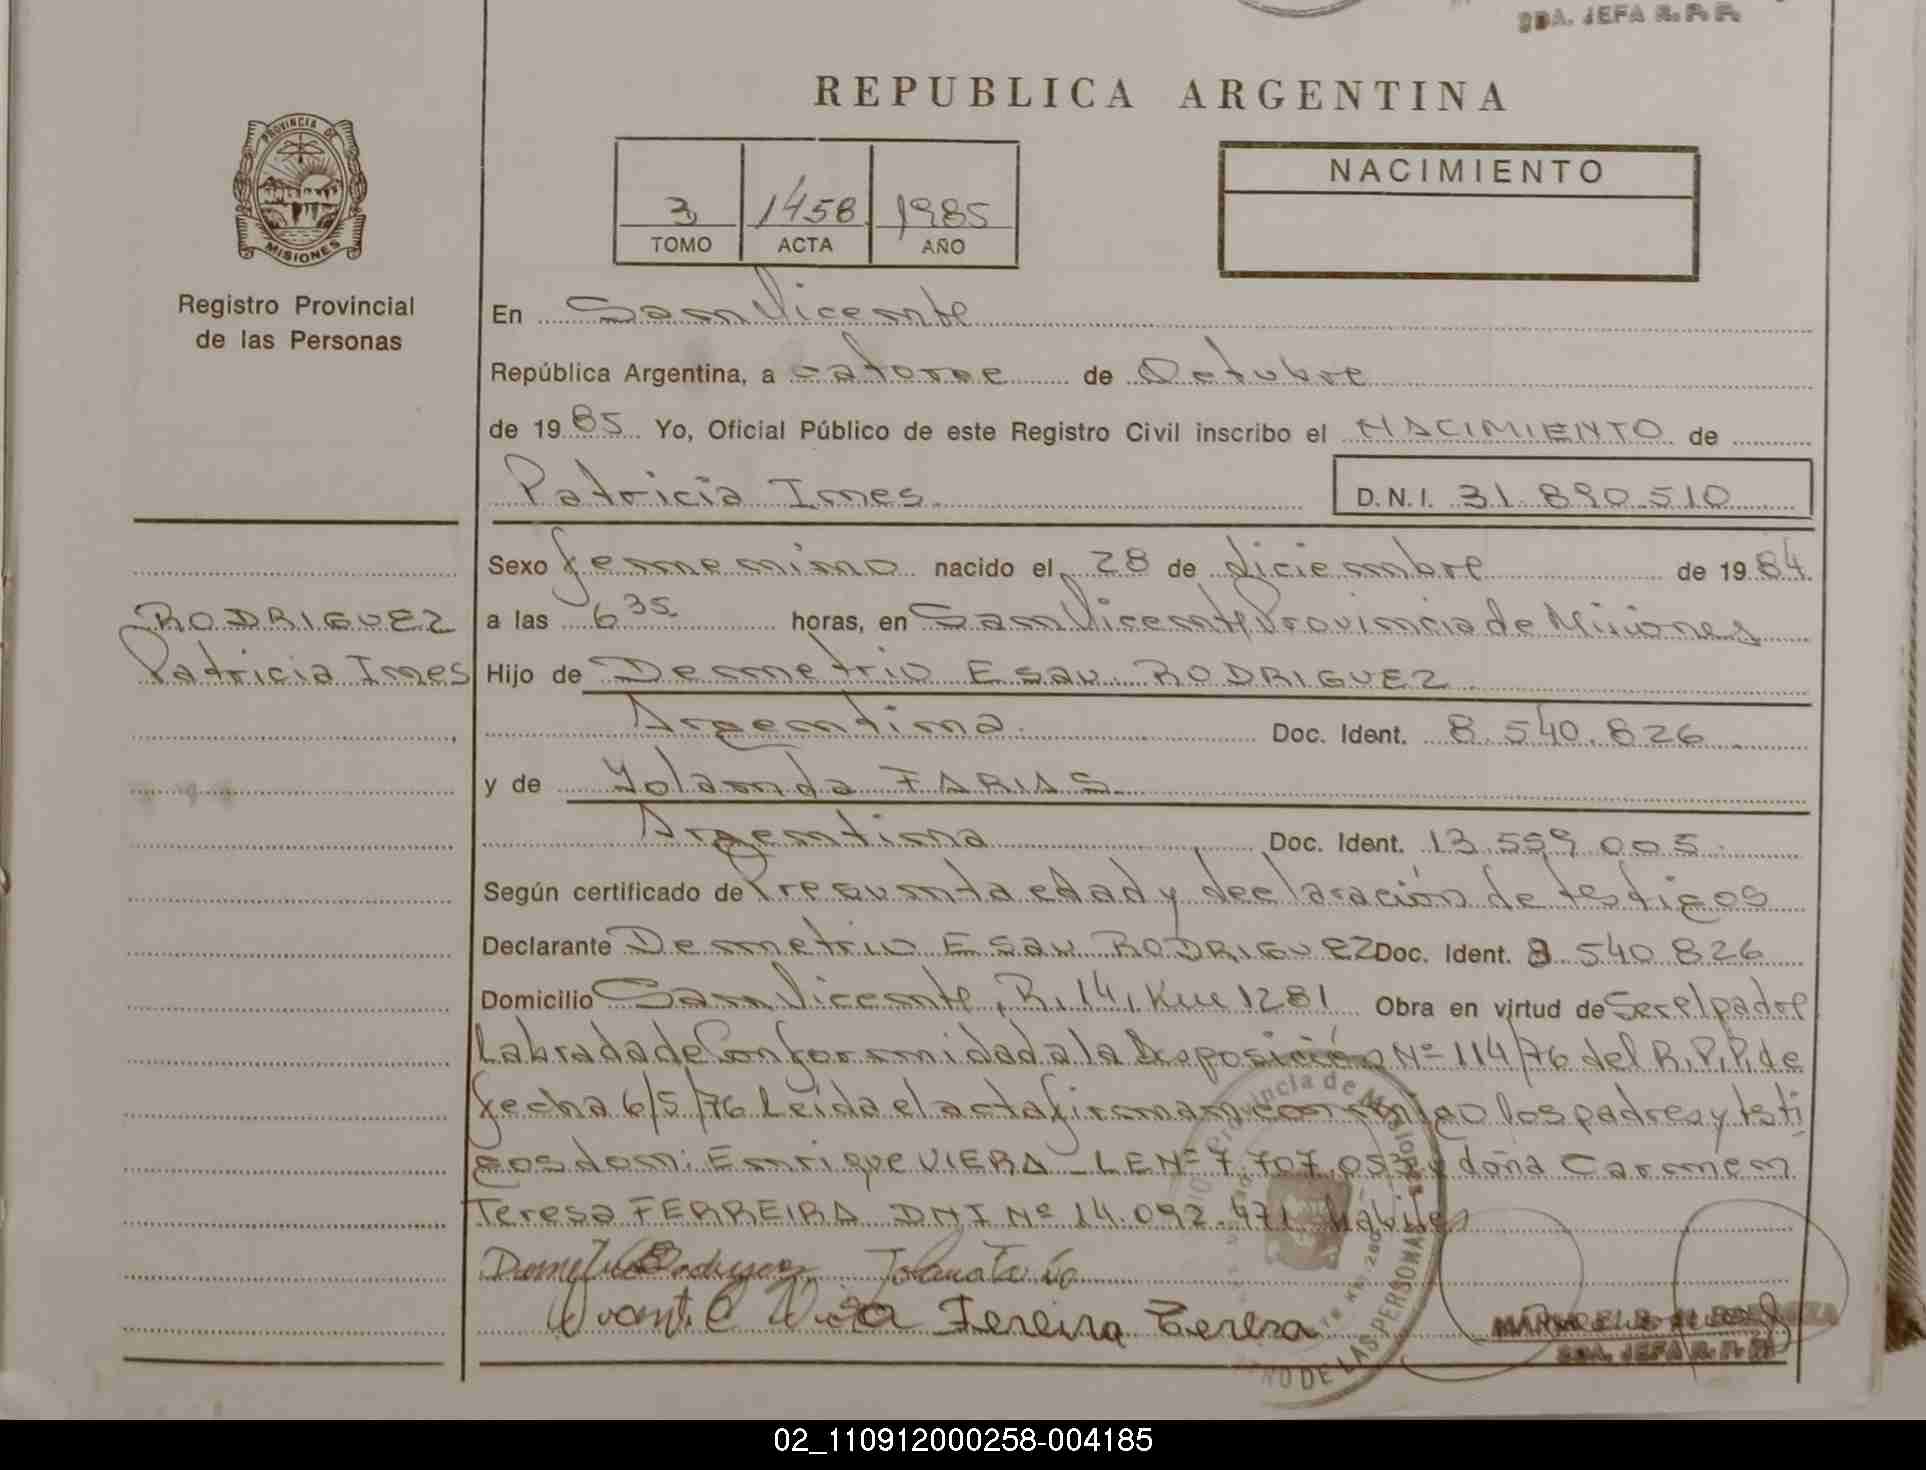 SDA. JEFA R. P. P.
REPUBLICA ARGENTINA
PROVINCIA DE
MISIONES
Registro Provincial
de las Personas
3 1458 1985
TOMO ACTA AÑO
NACIMIENTO
En San Vicente
República Argentina, a catorce de Octubre
de 1985 Yo, Oficial Público de este Registro Civil inscribo el NACIMIENTO de
Patricia Ines D.N.I. 31.890.510
Sexo femenino nacido el 28 de diciembre de 1984
RODRIGUEZ
Patricia Ines
a las 6 35 horas, en San Vicente Provincia de Misiones
Hijo de Demetrio Esau RODRIGUEZ
Argentina Doc. Ident. 8.540.826
y de Yolanda FARIAS
Argentina Doc. Ident. 13.559.005
Según certificado de Presunta edad y declaración de testigos
Declarante Demetrio Esau RODRIGUEZ Doc. Ident. 8.540.826
Domicilio San Vicente, R. 14, Km 1281 Obra en virtud de Ser el padre
Labrada de Conformidad a la Disposición Nº 114/76 del R.P.P. de
fecha 6/5/76 Leída el acta firman conmigo los padres y testi
gos don: Enrique VIERA - LE Nº 7.707.053 y doña Carmen
Teresa FERREIRA DNI Nº 14.092.471 hábiles
Provincia de Misiones
DE LAS PERSONAS
Ferreira Teresa
SDA. JEFA R. P. P.
02_110912000258-004185